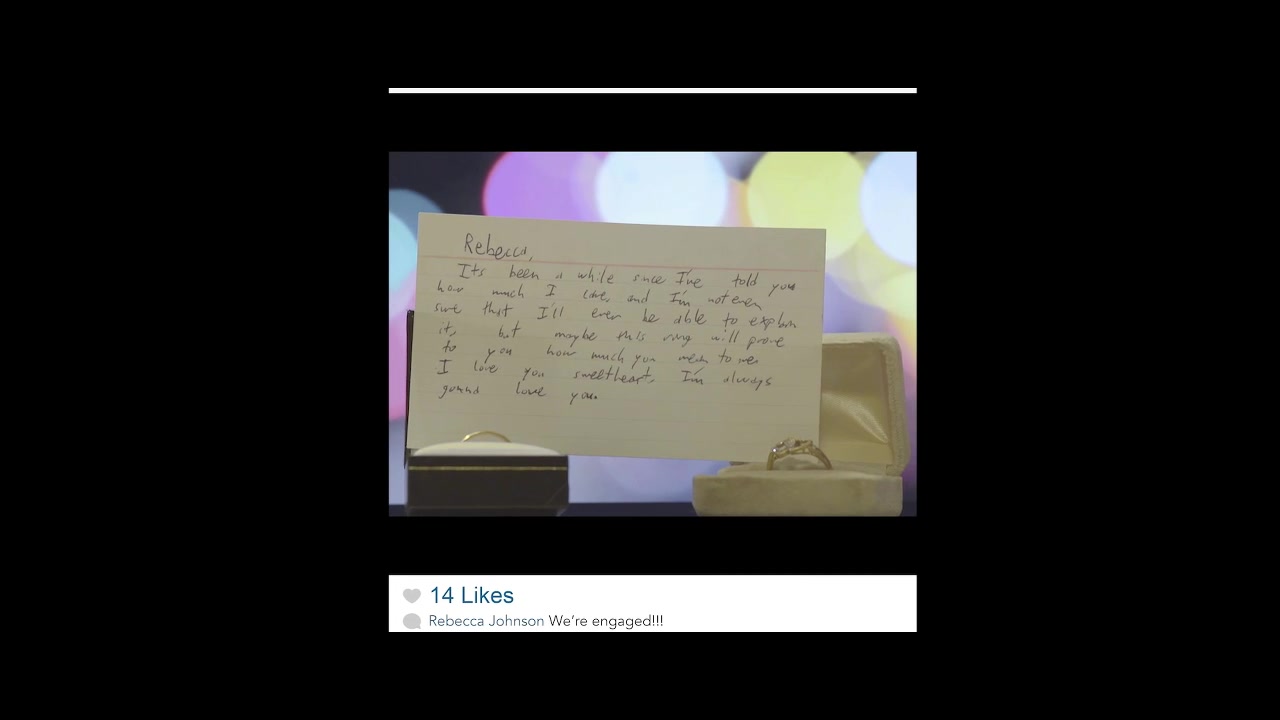 Rebecca,
It's been a while since I've told you
how much I love, and I'm not even
sure that I'll ever be able to explain
it, but maybe this ring will prove
to you how much you mean to me.
I love you sweetheart. I'm always
gonna love you.
14 Likes
Rebecca Johnson We're engaged!!!